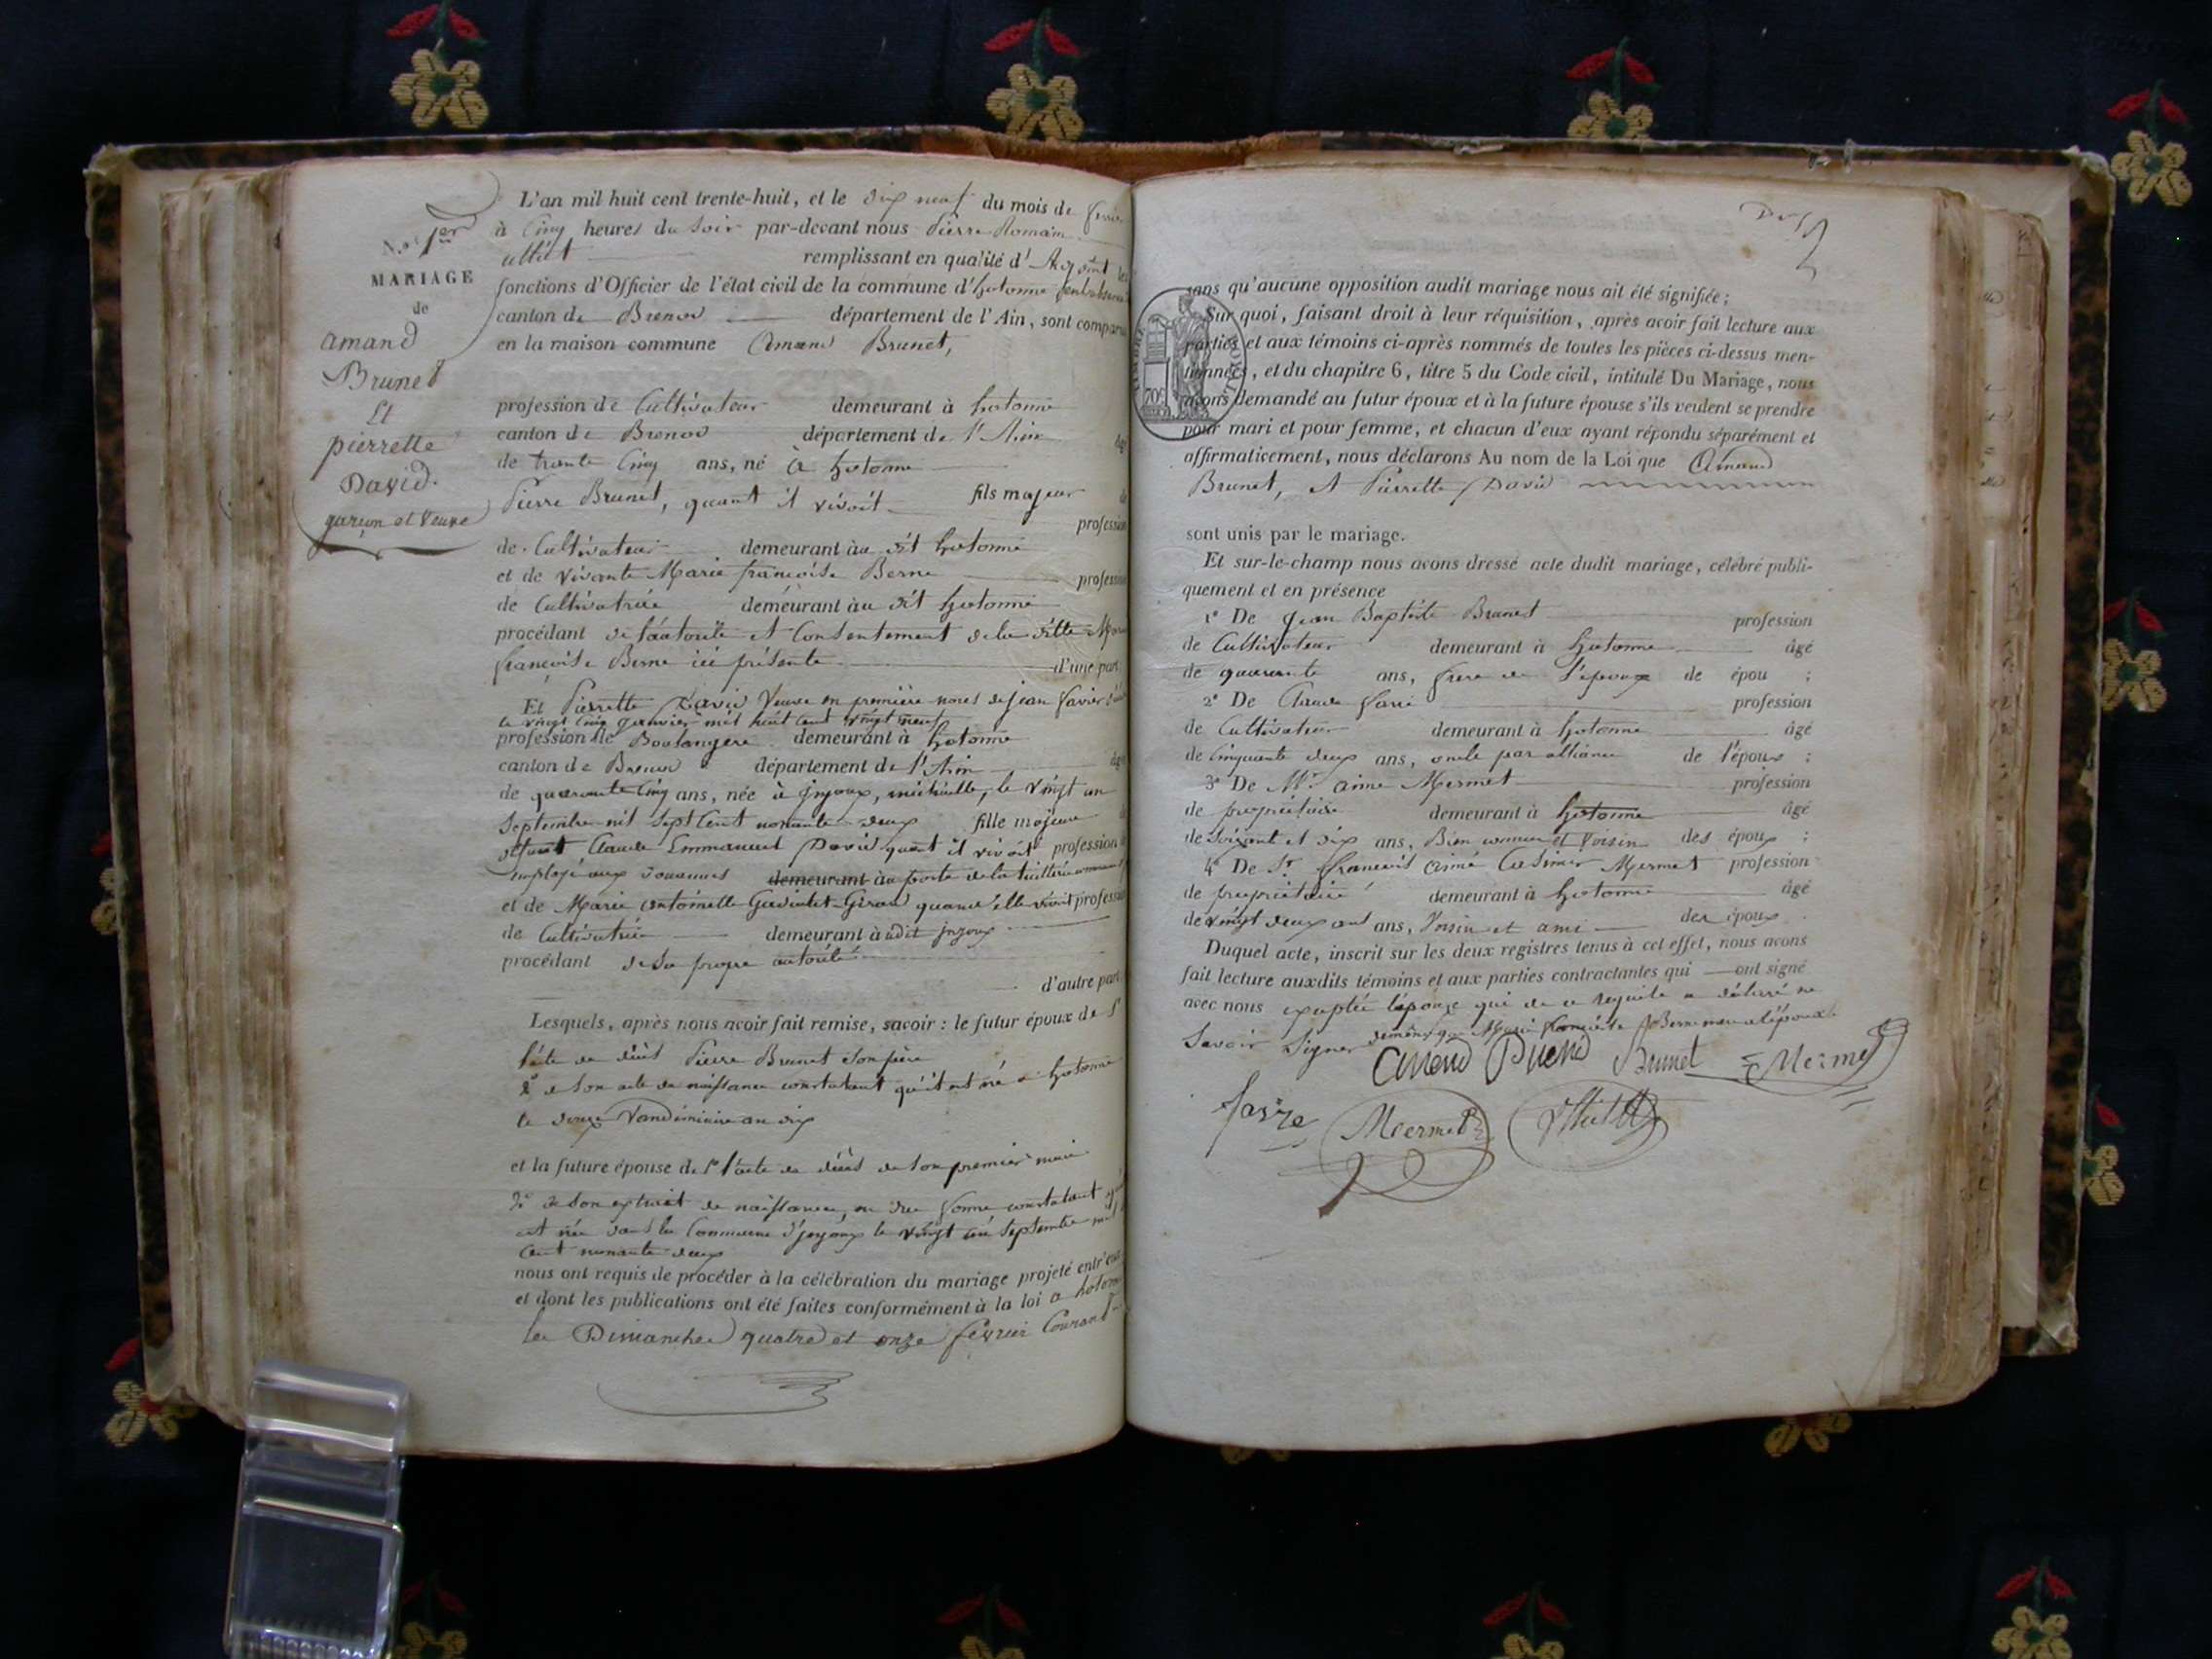 N.o 1er
MARIAGE
de
amand
Brunet
Et
pierrette
David.
garçon et veuve
L'an mil huit cent trente-huit, et le dix neuf du mois de
à Cinq heures du Soir par-devant nous Pierre Romain
remplissant en qualité d'
fonctions d'Officier de l'état civil de la commune d'hotonne
canton de Brenod département de l'Ain, sont
en la maison commune Amand Brunet,
profession de Cultivateur demeurant à hotonne
canton de Brenod département de l'Ain
de trente Cinq ans, né à hotonne
fils majeur
Pierre Brunet, quant il vivoit
profession
de Cultivateur demeurant au dit hotonne
et de vivante Marie françoise Berne
de Cultivatrice demeurant au dit hotonne
procédant de l'autorité et Consentement de la ditte
françoise Berne ici présente d'une part
Et Pierrette David Veuve en première noces de jean favier
le vingt cinq janvier mil huit cent vingt neuf
profession de Boulangere demeurant à hotonne
canton de Brenod département de l'Ain
de quarante Cinq ans, née à injoux, le vingt un
Septembre mil Sept Cent nonante deux fille majeure
défunt Claude Emmanuel David quant il vivoit profession
employé aux douannes demeurant au poste de la
et de Marie antoinette quand elle vivoit
de Cultivatrice demeurant à udit injoux
procédant de Sa propre autorité
d'autre part
Lesquels, après nous avoir fait remise, savoir : le futur époux de
l'acte de décès Pierre Brunet Son père
2° de Son acte de naissance constatant qu'il est né à hotonne
le douze Vandémiaire an dix
et la future épouse de l'acte de décès de Son premier mari
2° de Son extrait de naissance, en due forme constatant
est née dans la Commune d'injoux le vingt un Septembre
Cent nonante deux
nous ont requis de procéder à la célébration du mariage projeté entr'eux
et dont les publications ont été faites conformément à la loi a hotonne
les Dimanches quatre et onze fevrier Courant
sans qu'aucune opposition audit mariage nous ait été signifiée;
Sur quoi, faisant droit à leur réquisition, après avoir fait lecture aux
parties et aux témoins ci-après nommés de toutes les pièces ci-dessus men-
tionnées, et du chapitre 6, titre 5 du Code civil, intitulé Du Mariage, nous
avons demandé au futur époux et à la future épouse s'ils veulent se prendre
pour mari et pour femme, et chacun d'eux ayant répondu séparément et
affirmativement, nous déclarons Au nom de la Loi que Amand
Brunet, et Pierrette David
sont unis par le mariage.
Et sur-le-champ nous avons dressé acte dudit mariage, célébré publi-
quement et en présence
1° De Jean Baptiste Brunet profession
de Cultivateur demeurant à hotonne âgé
de quarante ans, frere de l'époux de épou ;
2° De Claude profession
de Cultivateur demeurant à hotonne âgé
de Cinquante deux ans, oncle par alliance de l'époux ;
3° De Mr. aimé Mermet profession
de propriétaire demeurant à hotonne âgé
de Soixante et dix ans, Bien connu et Voisin des époux ;
4° De Sr. francois aimé Casimir Mermet profession
de propriétaire demeurant à hotonne âgé
de vingt deux ans ans, Voisin et ami des époux.
Duquel acte, inscrit sur les deux registres tenus à cet effet, nous avons
fait lecture auxdits témoins et aux parties contractantes qui ont signé
avec nous exceptée l'épouse qui de ce requise a déclaré ne
Savoir Signer de même que Marie françoise Berne mère de l'époux
Brunet Mermet
Mermet